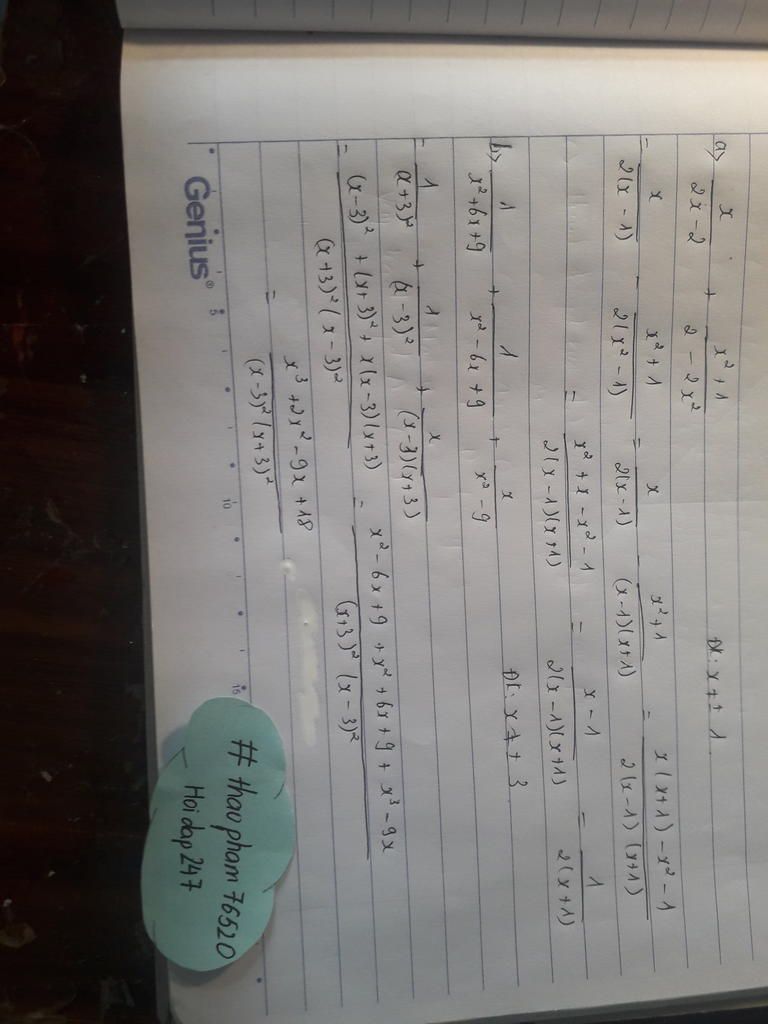 a) x/(2x-2) + (x²+1)/(2-2x²) ĐK: x ≠ ± 1
= x/(2(x-1)) - (x²+1)/(2(x²-1)) = x/(2(x-1)) - (x²+1)/((x-1)(x+1)) = (x(x+1)-x²-1)/(2(x-1)(x+1))
= (x²+x-x²-1)/(2(x-1)(x+1)) = (x-1)/(2(x-1)(x+1)) = 1/(2(x+1))
b) 1/(x²+6x+9) + 1/(x²-6x+9) + x/(x²-9) ĐK: x ≠ ± 3
= 1/(x+3)² + 1/(x-3)² + x/((x-3)(x+3))
= ((x-3)²+(x+3)²+x(x-3)(x+3))/((x+3)²(x-3)²) = (x²-6x+9+x²+6x+9+x³-9x)/((x+3)²(x-3)²)
= (x³+2x²-9x+18)/((x-3)²(x+3)²)
Genius® 5 10 15
# thaopham76520
Hoidap247